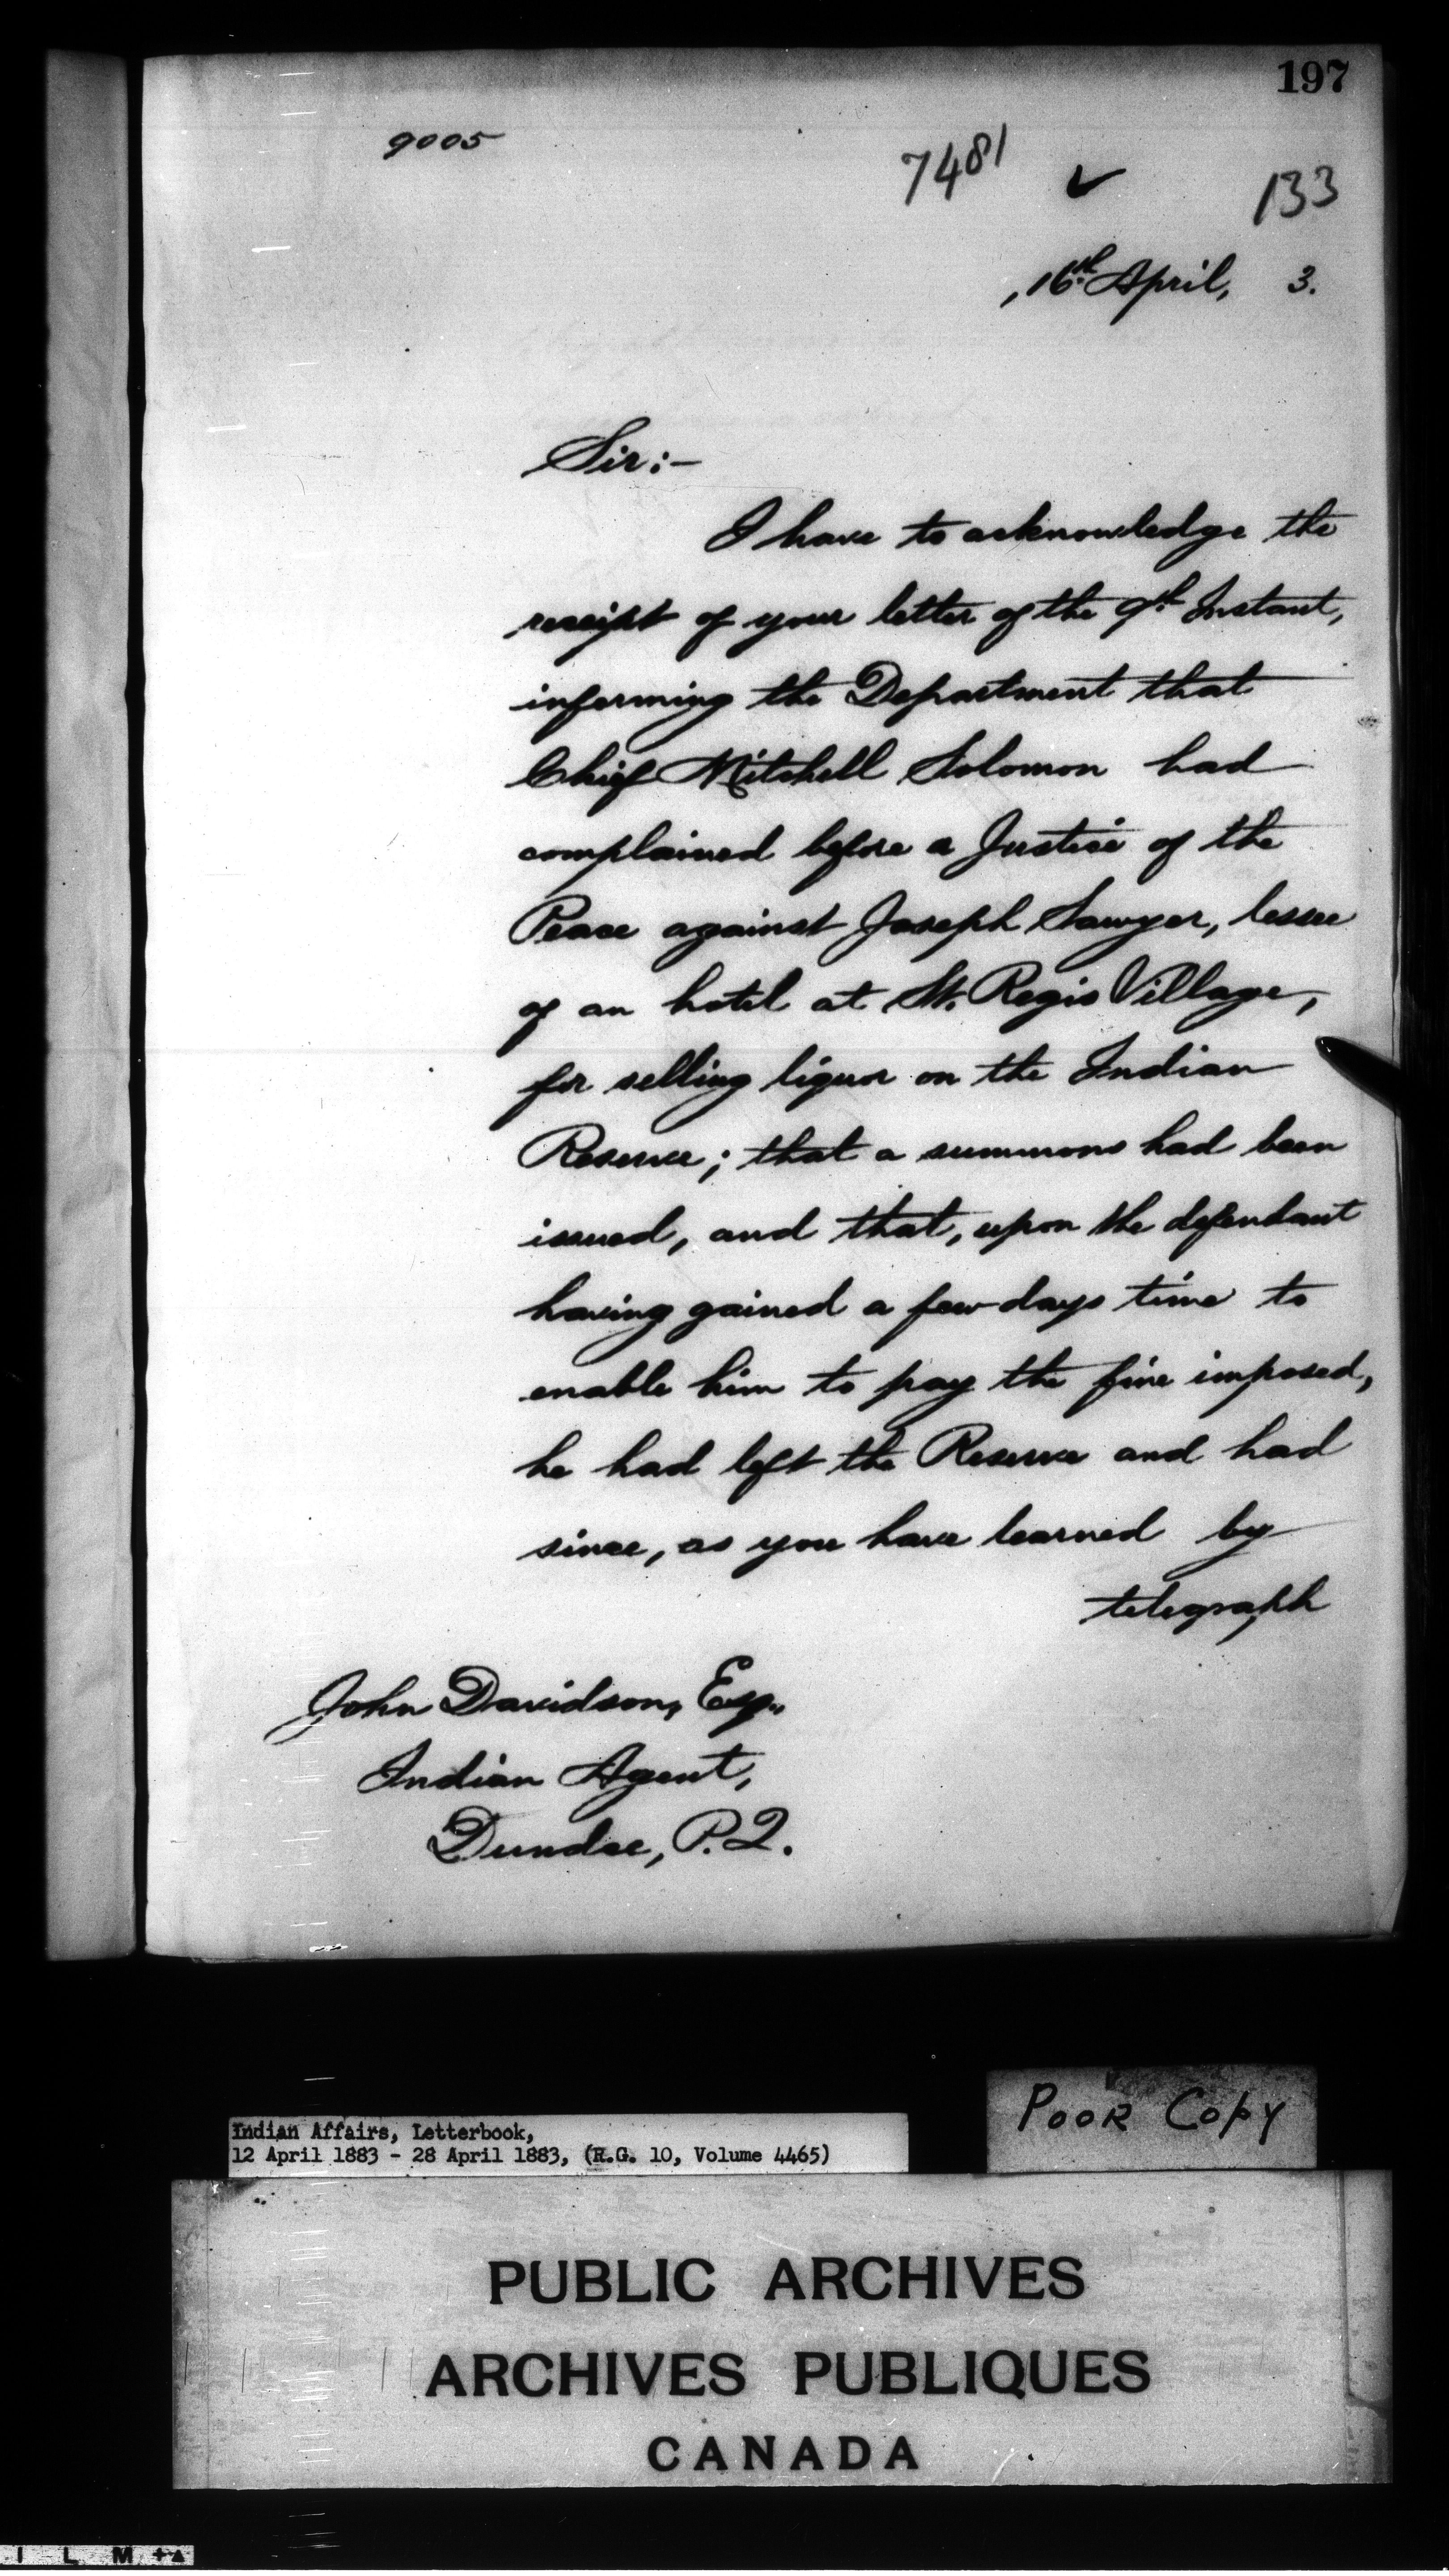 197
9005
7481
133
, 16th April, 3.
Sir:-
I have to acknowledge the
receipt of your letter of the 9th Instant,
informing the Department that
Chief Mitchell Solomon had
complained before a Justice of the
Peace against Joseph Sawyer, lessee
of an hotel at St. Regis Village,
for selling liquor on the Indian
Reserve; that a summons had been
issued, and that, upon the defendant
having gained a few days time to
enable him to pay the fine imposed,
he had left the Reserve and had
since, as you have learned by
telegraph
John Davidson, Esq.,
Indian Agent,
Dundee, P.Q.
POOR COPY
Indian Affairs, Letterbook,
12 April 1883 - 28 April 1883, (R.G. 10, Volume 4465)
PUBLIC ARCHIVES
ARCHIVES PUBLIQUES
CANADA
I L M